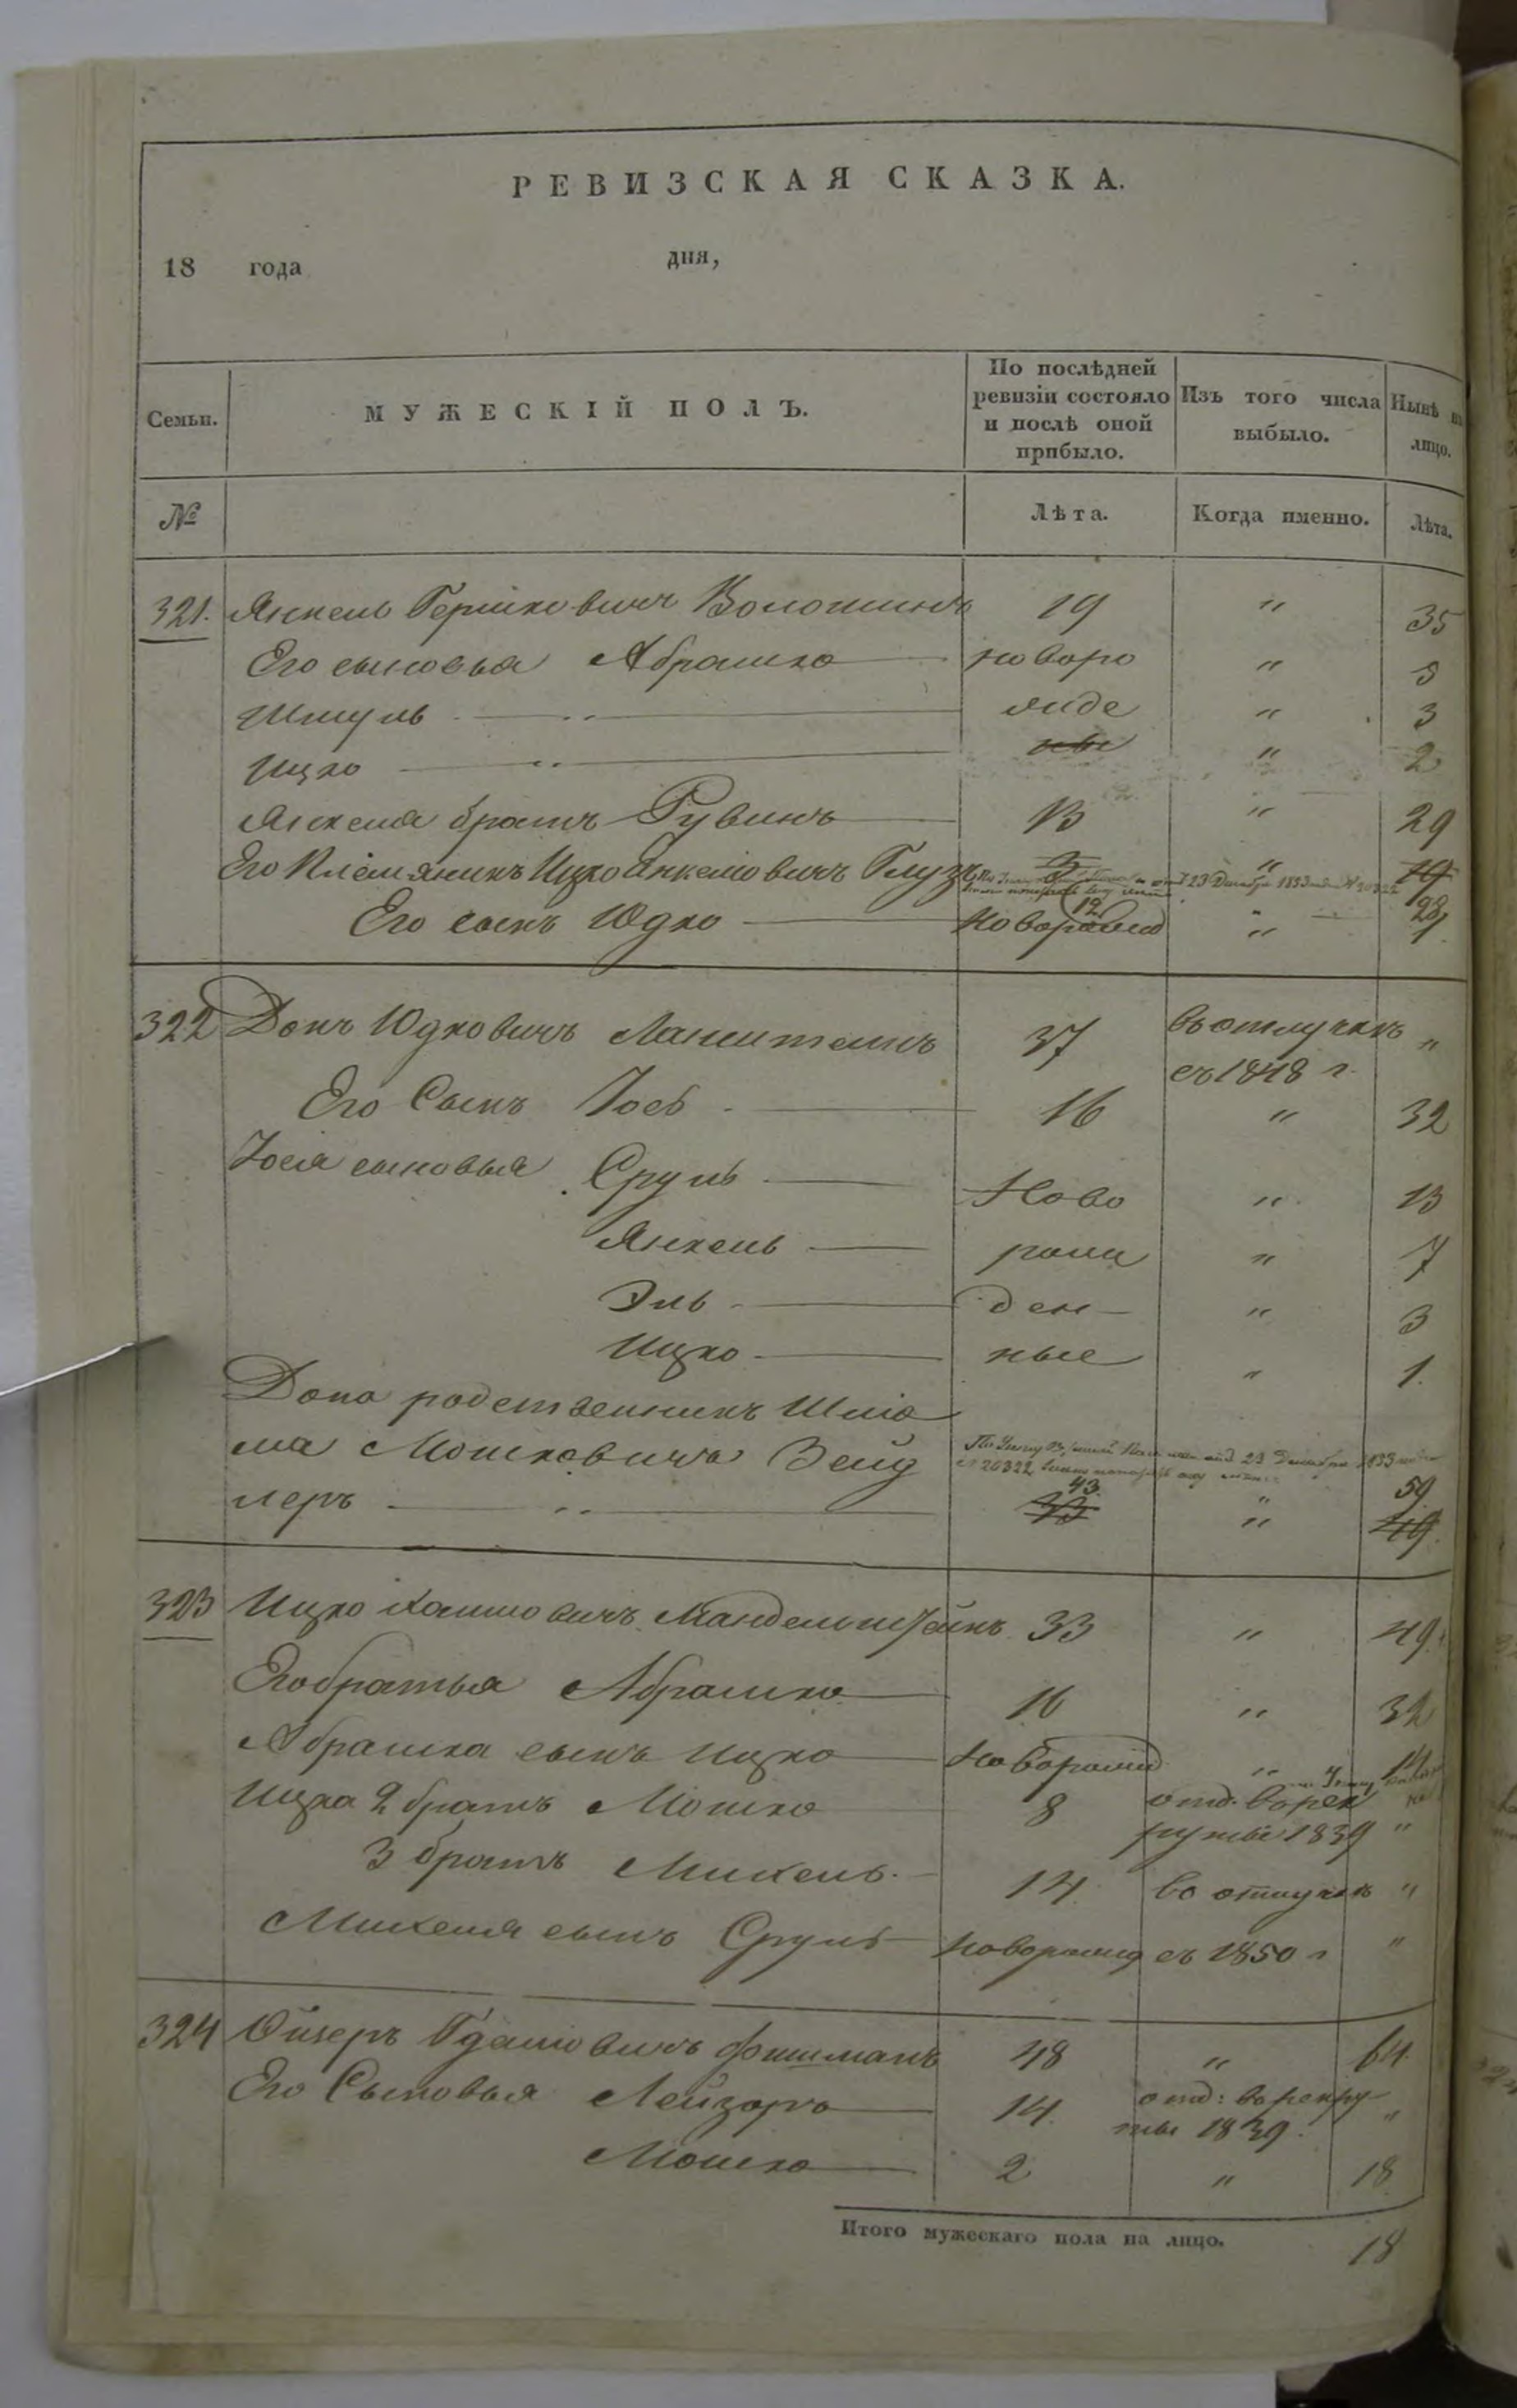 РЕВИЗСКАЯ СКАЗКА.
18 года дня,
Семьи. МУЖЕСКІЙ ПОЛЪ. По послѣдней ревизіи состояло и послѣ оной прибыло. Изъ того числа выбыло. Нынѣ на лицо.
№ Лѣта. Когда именно. Лѣта.
321. Янкель Гершковичъ Волошинъ 19 " 35
Его сыновья Абрамко новоро " 5
Шмуль " жде " 3
Ицко " ные " 2
Янкеля братъ Рувинъ 13 " 29
Его племяникъ Ицко Янкелiовичъ Глузъ 3 " 19
23 Декабря 1853 № 20322
12 28
Его сынъ Юдко новорожд " 1
322 Донъ Юдковичъ Ланштеинъ 37 въ отлучкѣ "
съ 1848 г.
Его Сынъ Іось 16 " 32
Іося сыновья Сруль Ново " 13
Янкель рож " 7
Эль ден " 3
Ицко ные " 1.
Дона родственникъ Шліо
ма Мошковичъ Зейд 23 Декабря 1853
№ 20322
43 " 59
леръ " 33 " 49.
323 Ицко Хаимовичъ Мандельштейнъ 33 " 49.
Его братья Абрамко 16 " 32
Абрамка сынъ Ицко новорожд " 14
Ицка 2 братъ Мошко 8 отд. въ рек
руты 1839 "
3 братъ Михель 14. въ отлучкѣ "
Михеля сынъ Сруль новорожд съ 1850 г "
324 Ойзеръ Гдаліовичъ Фишманъ 48 " 64.
Его Сыновья Лейзоръ 14. отд: въ рекру
ты 1839. "
Мошко 2 " 18
Итого мужескаго пола на лицо. 18